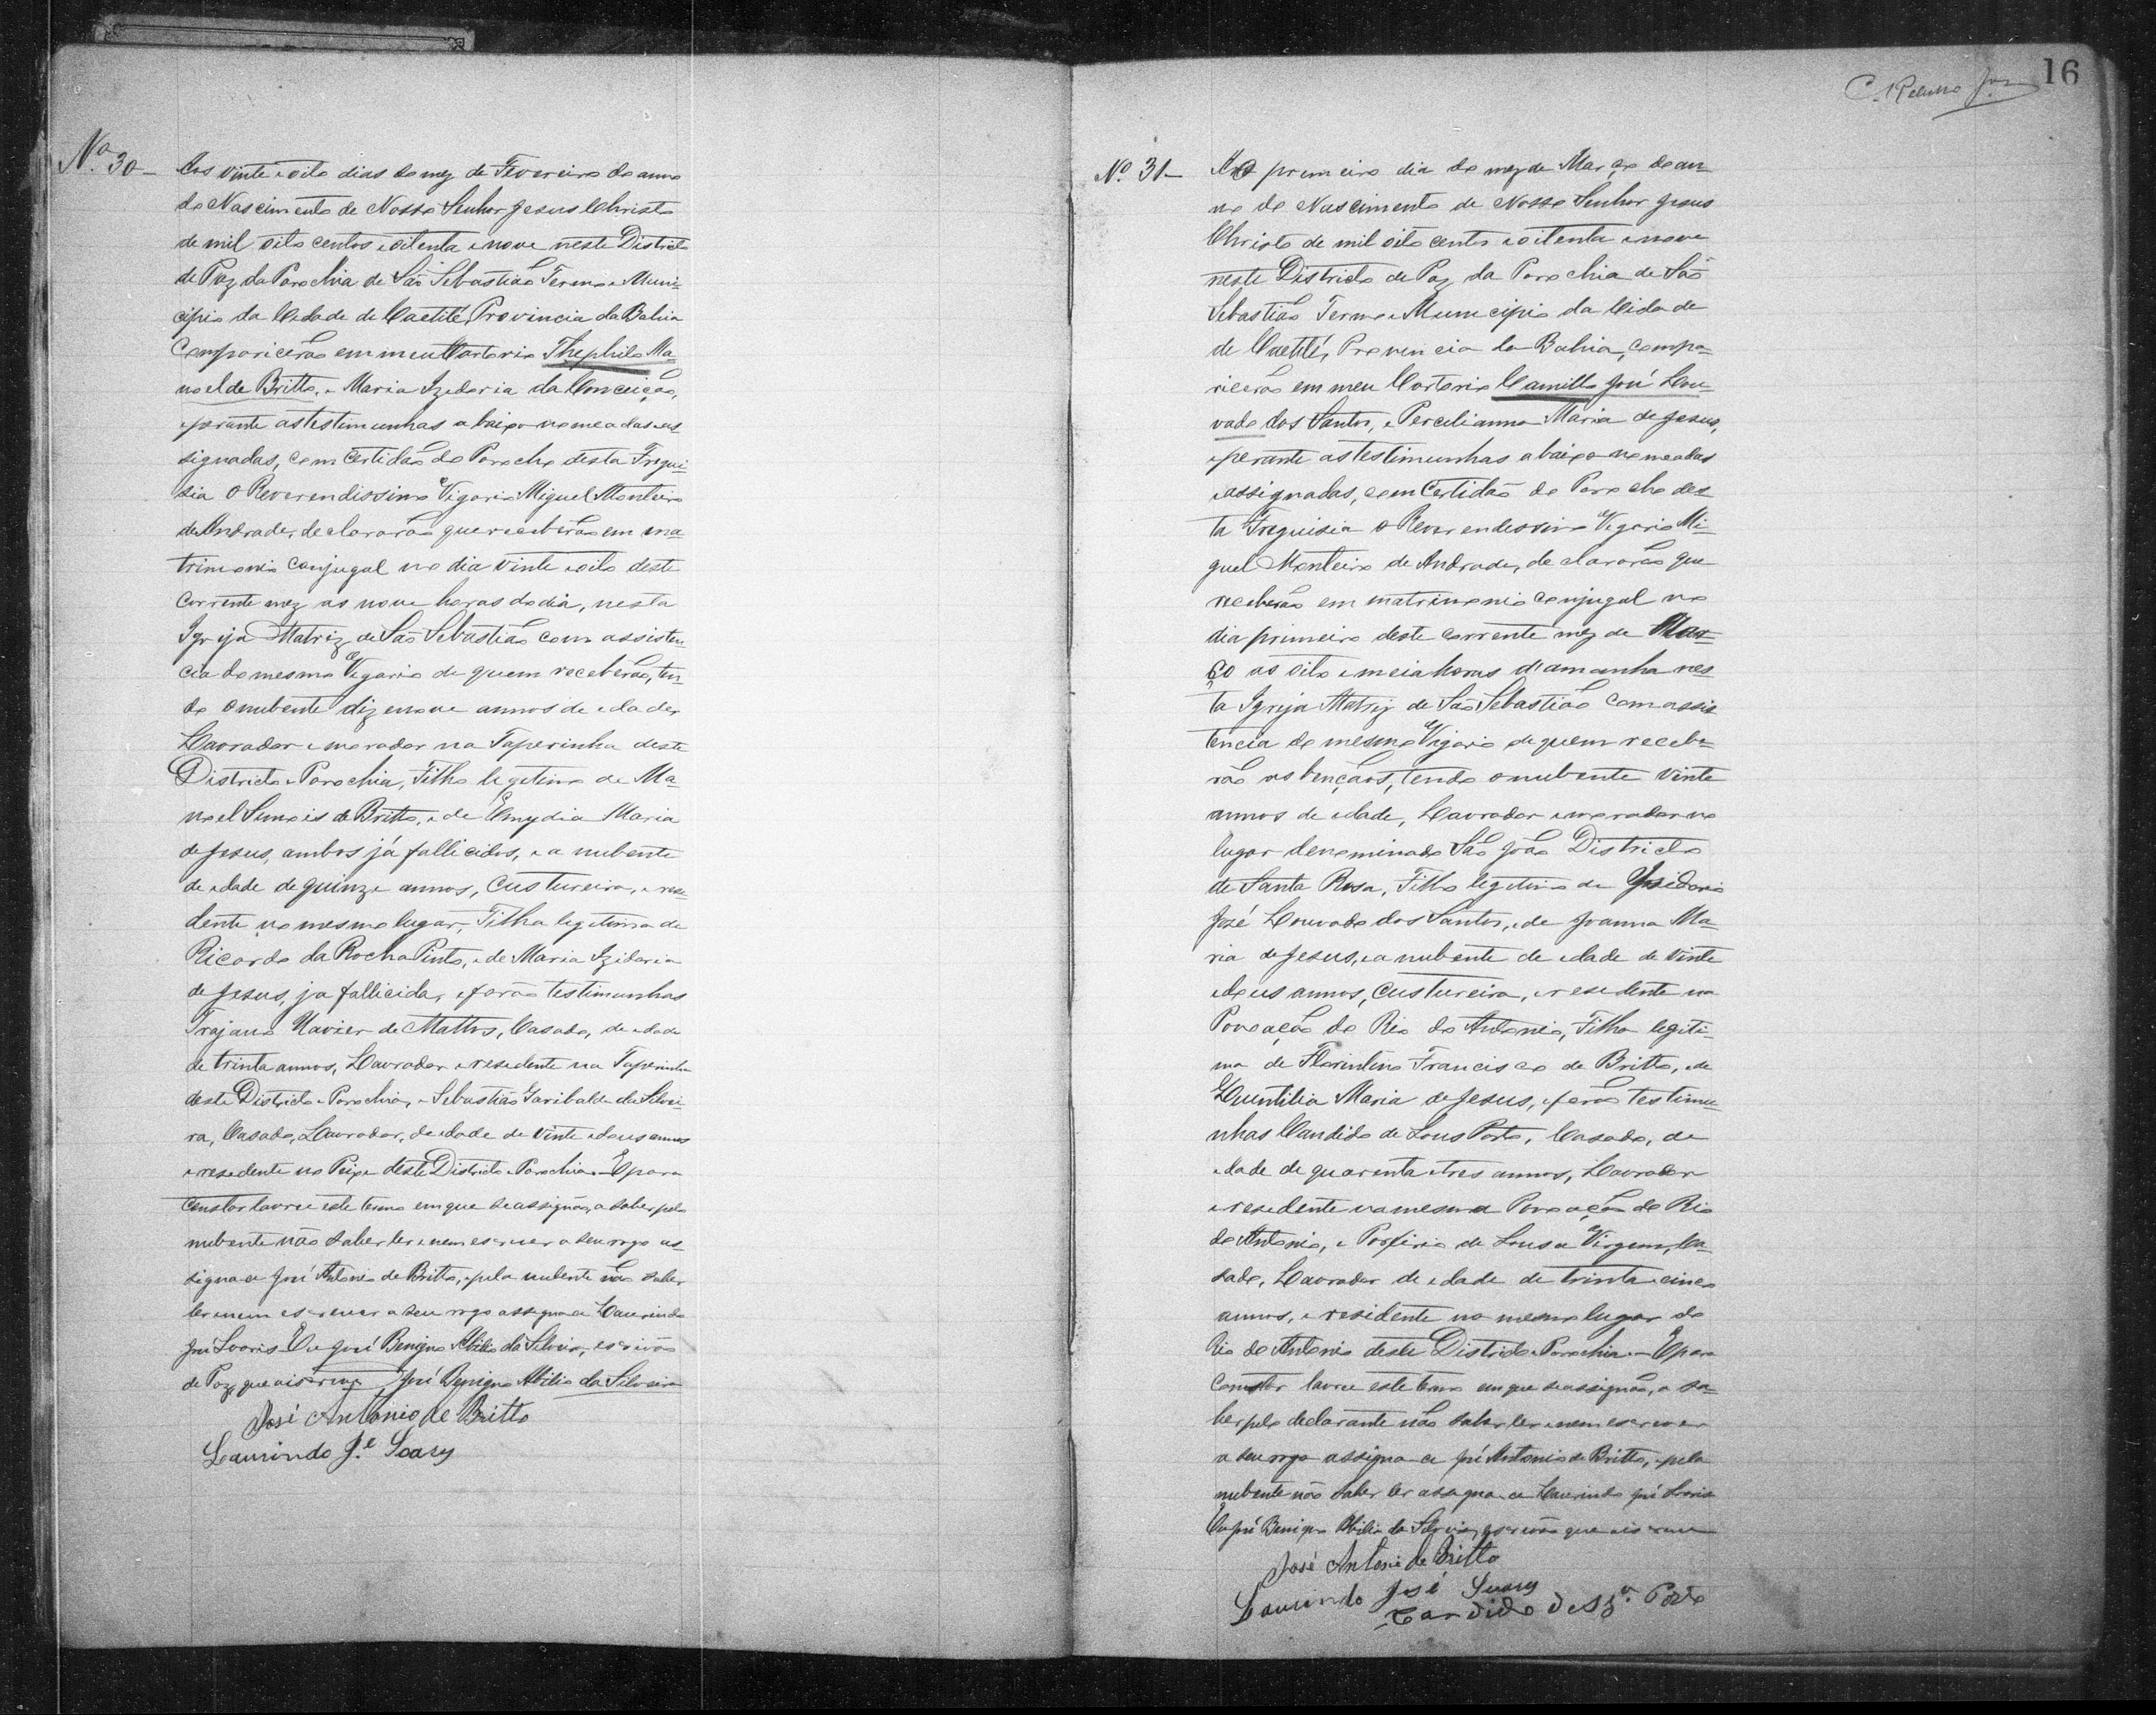 Nº 30_
Aos vinte e oito dias do mez de Fevereiro do anno
do Nascimento de Nosso Senhor Jesus Christo
de mil oito centos e oitenta e nove neste Districto
de Paz da Parochia de São Sebastião Termo e Muni-
cipio da Cidade de Caetité, Provincia da Bahia
Comparicerão em meu Cartorio Thephilo Ma-
noel de Britto, e Maria Izedoria da Conceição,
e perante as testimunhas abaixo nomeadas e as-
signadas, com Certidão do Parocho desta Fregui-
sia o Reverendissimo Vigario Miguel Monteiro
de Andrade, declararão que receberão em ma-
trimonio Conjugal no dia vinte e oito deste
Corrente mez as nove horas do dia, nesta
Igreja Matriz de São Sebastião com assisten-
cia do mesmo Vigario de quem receberão, ten-
do o nubente dizenove annos de edade,
Lavrador e morador na Taperinha deste
Districto e Parochia, Filho legitimo de Ma-
noel Simois de Britto, e de Emydia Maria
de Jesus, ambos já fallicidos, e a nubente
de edade de quinze annos, Custureira, e resi-
dente no mesmo lugar, Filha legitima de
Ricardo da Rocha Pinto, e de Maria Izidoria
de Jesus, ja fallicida, e forão testimunhas
Trajano Xavier de Mattos, Casado, de edade
de trinta annos, Lavrador e residente na Taperinha
deste Districto e Parochia, e Sebastião Garibalde da Silvei-
ra, Casado, Lavrador, de edade de vinte e dous annos
e resedente no Peixe deste Districto e Parochia. E para
Constar lavrei este termo em que se assignão, a saber pelo
nubente não saber ler e nem escrever a seu rogo as-
signa a José Antonio de Britto, e pela nubente não saber
ler e nem escrever a seu rogo assigna a Laurindo
José Soaris. Eu José Benigno Abilio da Silveira, escrivão
de Paz, que o iscrevy José Benigno Abilio da Silveira
José Antonio de Britto
Laurindo J.e Soarz
16
Nº 31_
Ao primeiro dia do mez de Março do an-
no do Nascimento de Nosso Senhor Jesus
Christo de mil oito centos e oitenta e nove
neste Districto de Paz da Parochia de São
Sebastião Termo e Municipio da Cidade
de Caetité, Provincia da Bahia, compa-
ricerão em meu Cartorio Camillo José Lou-
vado dos Santos, e Percilianna Maria de Jesus,
e perante as testimunhas abaixo nomeadas
e assignadas, com Certidão do Parocho des-
ta Freguisia o Reverendissimo Vigario Mi-
guel Monteiro de Andrade, declararão que
receberão em matrimonio conjugal no
dia primeiro deste corrente mez de Mar-
ço as oito e meia horas d'amanha nes-
ta Igreja Matriz de São Sebastião com assis-
tencia do mesmo Vigario de quem recebe-
rão as bençãos, tendo o nubente vinte
annos de edade, Lavrador e morador no
lugar denominado São João Districto
de Santa Rosa, Filho legitimo de Ysidorio
José Louvado dos Santos, e de Joanna Ma-
ria de Jesus, e a nubente de edade de vinte
e dous annos, Custureira, e resedente na
Povoação do Rio do Antonio, Filha legiti-
ma de Florintino Francisco de Britto, e de
Quintilia Maria de Jesus, e forão testimu-
nhas Candido de Sousa Porto, Casado, de
edade de quarenta e tres annos, Lavrador
e resedente na mesma Povoação do Rio
do Antonio, e Porfirio de Sousa Virgem, Ca-
sado, Lavrador de edade de trinta e cinco
annos, e residente no mesmo lugar do
Rio do Antonio deste Districto e Parochia. E para
Constar lavrei este termo em que se assignão, a sa-
ber pelo declarante não saber ler e nem escrever
a seu rogo assigna a José Antonio de Britto, e pela
nubente não saber ler assigna a Laurindo José Soaris
Eu José Benigno Abilio da Silveira, escrivão que o iscrevi
José Antonio de Britto
Laurindo José Suarz
Candido de Sz.a Porto